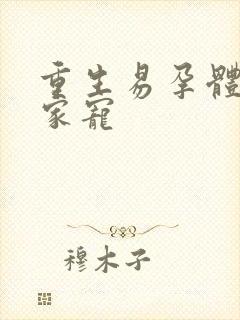 重生易孕體
家寵
穆木子